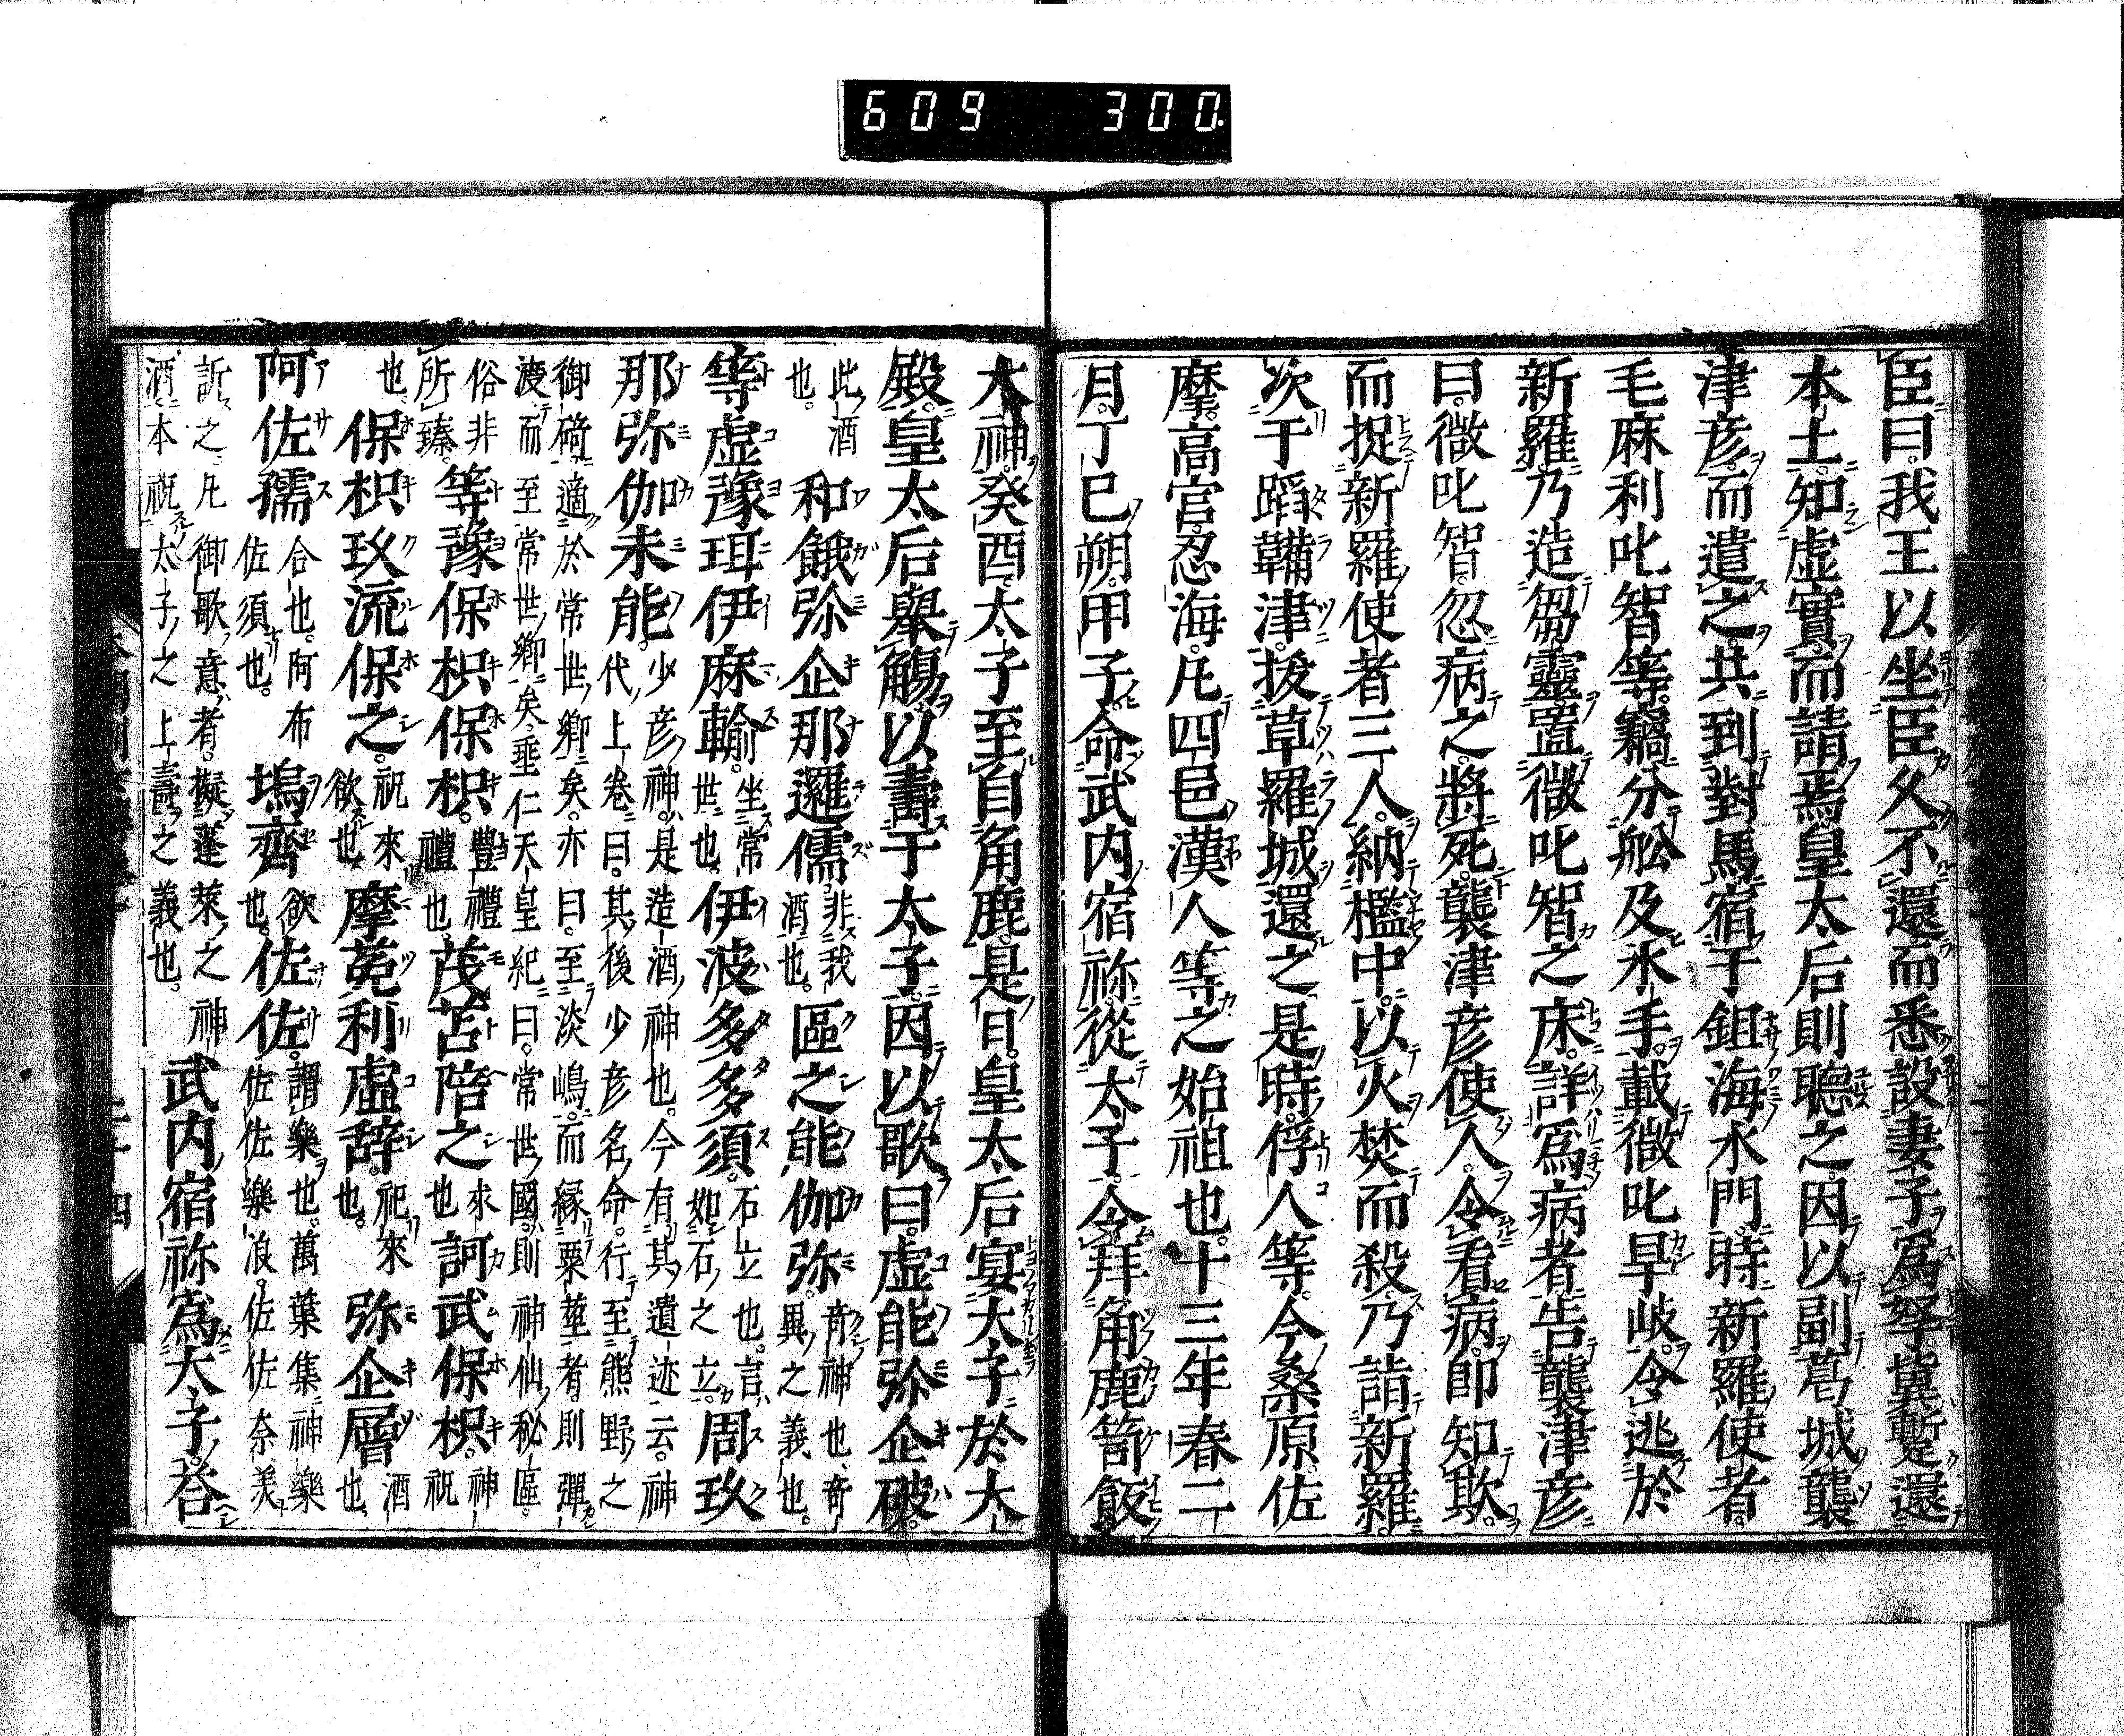 609 300
臣曰我王以坐臣久不還而悉設妻子爲孥冀蹔還
本土知虚實而請焉皇太后則聽之因以副葛城襲
津彦而遣之共到對馬宿于鉏海水門時新羅使者
毛麻利叱智等竊分舩及水手載微叱旱岐令逃於
新羅乃造蒭靈置微叱智之床詳爲病者告襲津彦
曰微叱智忽病之將死襲津彦使人令看病即知欺
而捉新羅使者三人納檻中以火焚而殺乃詣新羅
次于蹈鞴津拔草羅城還之是時俘人等今桑原佐
摩高宮忍海凡四邑漢人等之始祖也十三年春二
月丁巳朔甲子命武内宿祢從太子令拜角鹿笥飯
大神癸酉太子至自角鹿是日皇太后宴太子於大
殿皇太后擧觴以壽于太子因以歌曰虚能弥企破
此酒也和餓弥企那邏儒非我酒也區之能伽弥奇神也奇異之義也
等虚豫珥伊麻輸坐常世也伊波多多須石立也言如石之立周玖
那弥伽未能少彦神是造酒神也今有其遺迹云神代上卷曰其後少彦名命行至熊野之
御碕適於常世郷矣亦曰至淡嶋而縁粟莖者則彈
渡而至常世郷矣垂仁天皇紀曰常世國則神仙秘區
俗非所臻等豫保枳保枳豐禮禮也茂苔陪之來也訶武保枳神祝
也保枳玖流保之祝來欲也摩菟利虚辞祀來也弥企層酒也
阿佐孺合也阿布佐須也塢齊欲也佐佐謂樂也萬葉集神樂佐佐樂浪佐佐奈美
訢之凡御歌意者擬蓬萊之神
酒本祝太子之上壽之義也武内宿祢爲太子荅